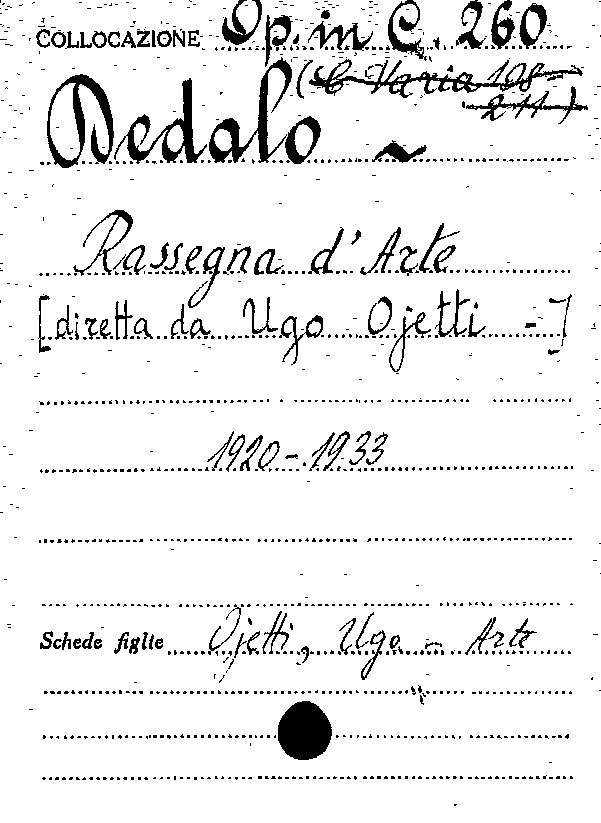 COLLOCAZIONE Op. in C. 260
(C Varia 198-
211)
Dedalo ~
Rassegna d'Arte
[diretta da Ugo Ojetti -]
1920-1933
Schede figlie Ojetti, Ugo - Arte